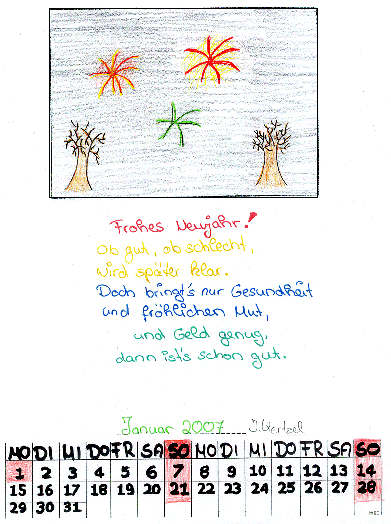 Frohes Neujahr!
Ob gut, ob schlecht,
wird später klar.
Doch bringt's nur Gesundheit
und fröhlichen Mut,
und Geld genug,
dann ist's schon gut.
Januar 2007
MO DI MI DO FR SA SO MO DI MI DO FR SA SO
1 2 3 4 5 6 7 8 9 10 11 12 13 14
15 16 17 18 19 20 21 22 23 24 25 26 27 28
29 30 31